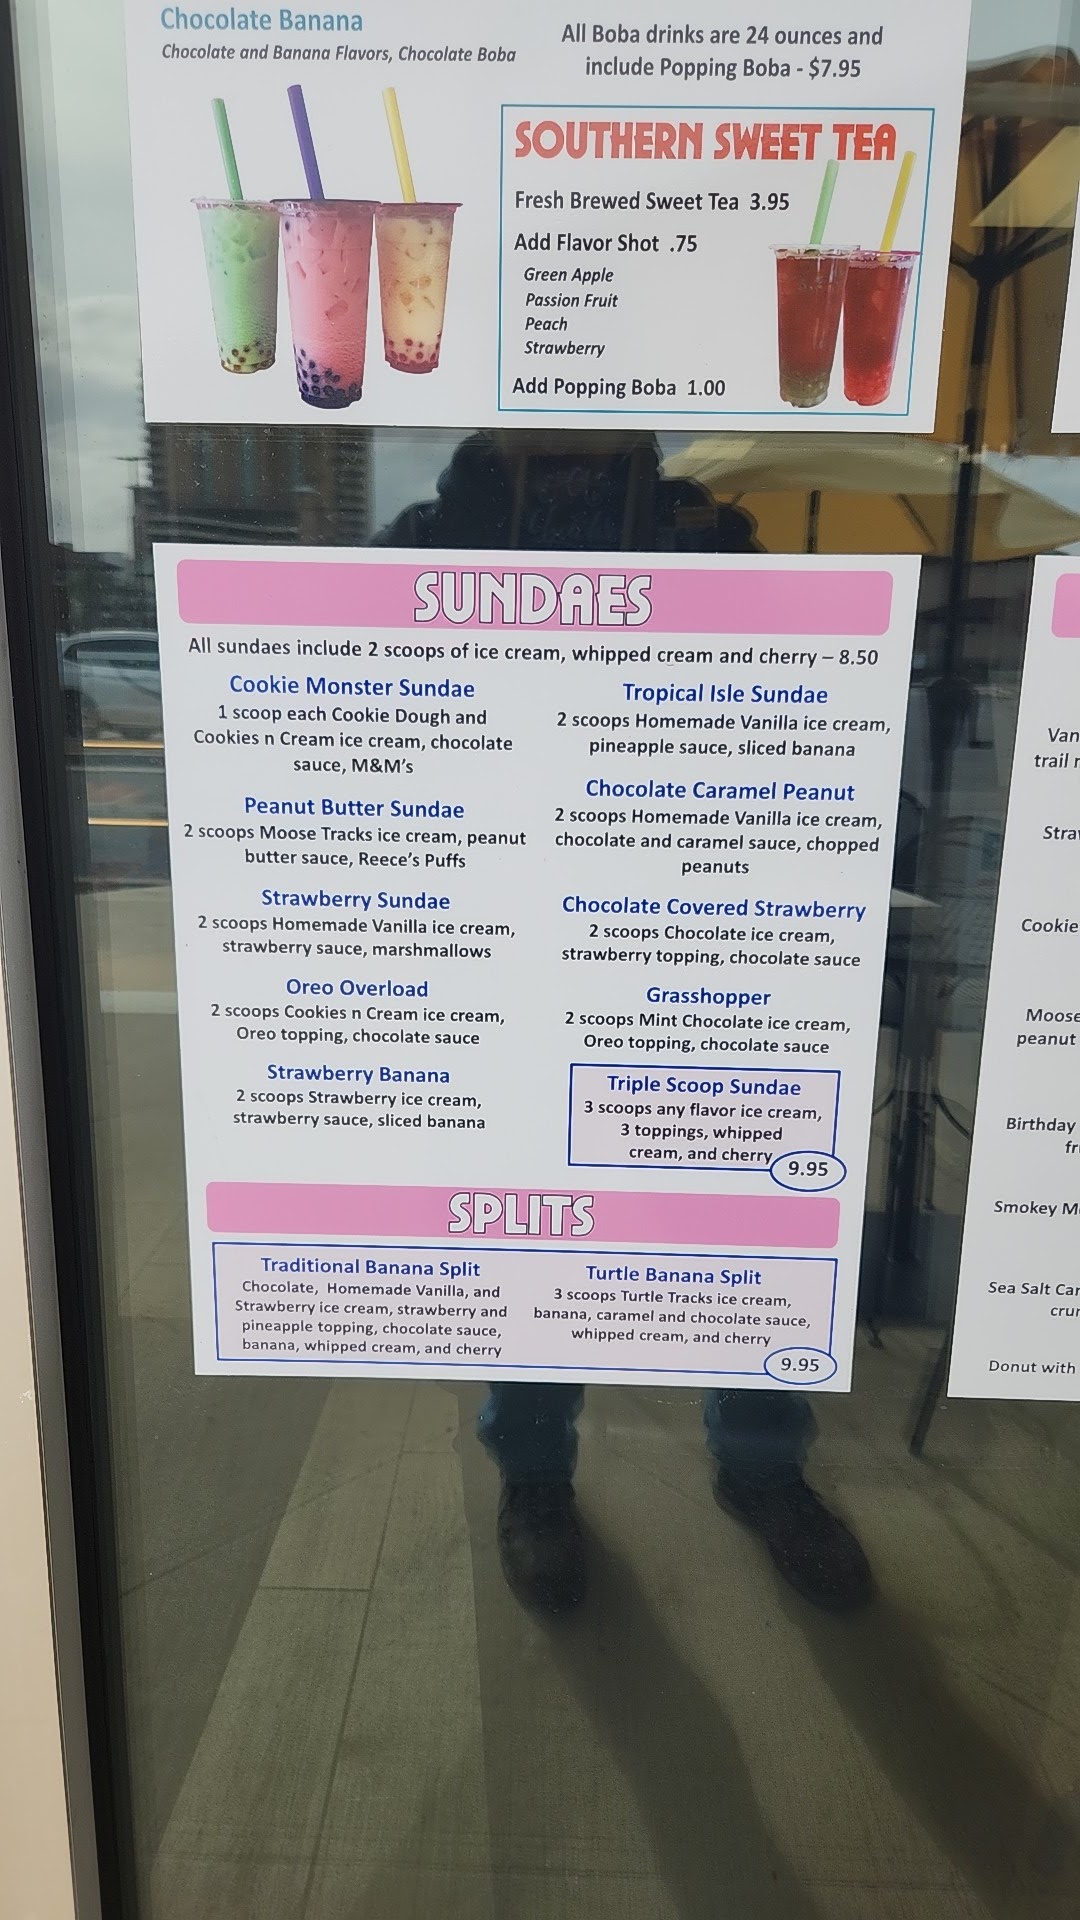 Chocolate Banana
Chocolate and Banana Flavors, Chocolate Boba
All Boba drinks are 24 ounces and
include Popping Boba - $7.95
SOUTHERN SWEET TEA
Fresh Brewed Sweet Tea 3.95
Add Flavor Shot .75
Green Apple
Passion Fruit
Peach
Strawberry
Add Popping Boba 1.00
SUNDAES
All sundaes include 2 scoops of ice cream, whipped cream and cherry – 8.50
Cookie Monster Sundae
1 scoop each Cookie Dough and
Cookies n Cream ice cream, chocolate
sauce, M&M's
Peanut Butter Sundae
2 scoops Moose Tracks ice cream, peanut
butter sauce, Reece's Puffs
Strawberry Sundae
2 scoops Homemade Vanilla ice cream,
strawberry sauce, marshmallows
Oreo Overload
2 scoops Cookies n Cream ice cream,
Oreo topping, chocolate sauce
Strawberry Banana
2 scoops Strawberry ice cream,
strawberry sauce, sliced banana
Tropical Isle Sundae
2 scoops Homemade Vanilla ice cream,
pineapple sauce, sliced banana
Chocolate Caramel Peanut
2 scoops Homemade Vanilla ice cream,
chocolate and caramel sauce, chopped
peanuts
Chocolate Covered Strawberry
2 scoops Chocolate ice cream,
strawberry topping, chocolate sauce
Grasshopper
2 scoops Mint Chocolate ice cream,
Oreo topping, chocolate sauce
Triple Scoop Sundae
3 scoops any flavor ice cream,
3 toppings, whipped
cream, and cherry
9.95
SPLITS
Traditional Banana Split
Chocolate, Homemade Vanilla, and
Strawberry ice cream, strawberry and
pineapple topping, chocolate sauce,
banana, whipped cream, and cherry
Turtle Banana Split
3 scoops Turtle Tracks ice cream,
banana, caramel and chocolate sauce,
whipped cream, and cherry
9.95
Van
trail
Cookie
Moose
peanut
Birthday
Smokey
Sea Salt
Donut with